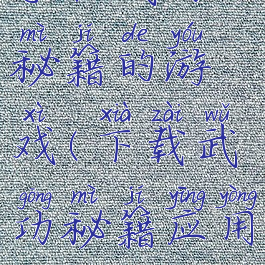 mì jí de yóu
秘籍的游
xì xià zài wǔ
戏(下载武
gōng mì jí yīng yòng
功秘籍应用